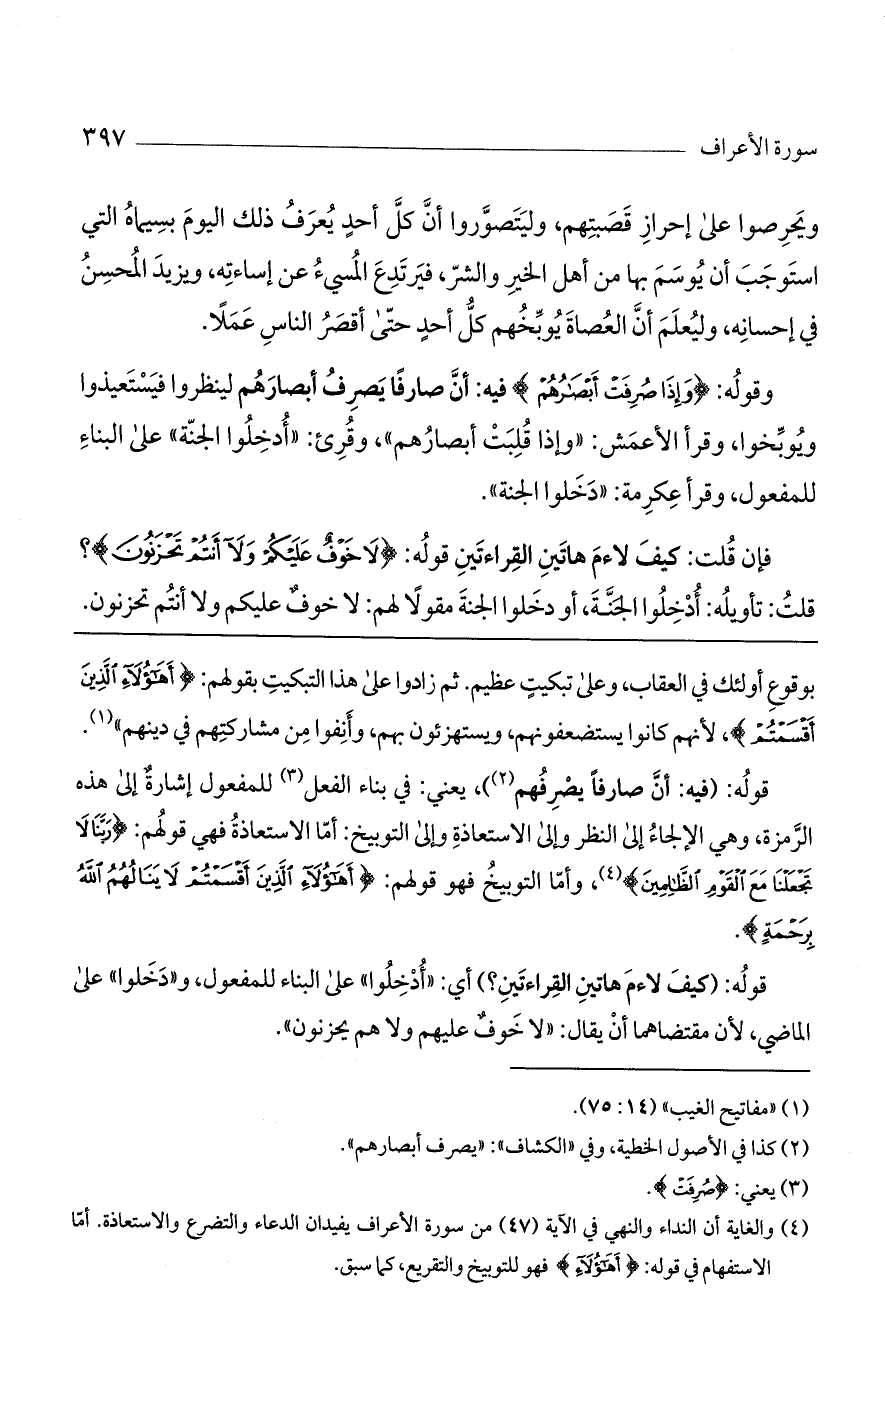 سورة الأعراف ٣٩٧
ويَحرِصوا على إحرازِ قَصَبتِهم، وليَتَصوَّروا أنَّ كلَّ أحدٍ يُعرَفُ ذلك اليومَ بسِيماهُ التي
استَوجَبَ أن يُوسَمَ بها من أهل الخيرِ والشرّ، فيَرتَدِعَ المُسيءُ عن إساءتِه، ويزيدَ المُحسِنُ
في إحسانِه، وليُعلَمَ أنَّ العُصاةَ يُوبِّخُهم كلُّ أحدٍ حتّىٰ أقصَرُ الناسِ عَمَلًا.
وقولُه: ﴿وَإِذَا صُرِفَتْ أَبْصَٰرُهُمْ﴾ فيه: أنَّ صارفًا يَصرِفُ أبصارَهُم لينظروا فيَسْتَعيذوا
ويُوبِّخوا، وقرأ الأعمَش: «وإذا قُلِبَتْ أبصارُهم»، وقُرِئ: «أُدخِلُوا الجنّة» علىٰ البناءِ
للمفعول، وقرأ عِكرِمة: «دَخَلوا الجنة».
فإن قُلت: كيفَ لاءمَ هاتَينِ القِراءتَينِ قولُه: ﴿لَا خَوْفٌ عَلَيْكُمْ وَلَآ أَنتُمْ تَحْزَنُونَ﴾؟
قلتُ: تأويلُه: أُدْخِلُوا الجَنَّةَ، أو دخَلوا الجنةَ مقولًا لهم: لا خوفٌ عليكم ولا أنتُم تحزنون.
بوقوعِ أولئك في العقاب، وعلىٰ تبكيتٍ عظيم. ثم زادوا علىٰ هذا التبكيتِ بقولهم: ﴿أَهَٰٓؤُلَآءِ ٱلَّذِينَ
أَقْسَمْتُمْ﴾، لأنهم كانوا يستضعفونهم، ويستهزئون بهم، وأَنِفوا مِن مشاركتِهم في دينهم»(١).
قولُه: (فيه: أنَّ صارفاً يصْرِفُهم(٢))، يعني: في بناء الفعل(٣) للمفعول إشارةٌ إلىٰ هذه
الرَّمزة، وهي الإلجاءُ إلىٰ النظر وإلىٰ الاستعاذةِ وإلىٰ التوبيخ: أمّا الاستعاذةُ فهي قولُهم: ﴿رَبَّنَا لَا
تَجْعَلْنَا مَعَ ٱلْقَوْمِ ٱلظَّٰلِمِينَ﴾(٤)، وأمّا التوبيخُ فهو قولهم: ﴿أَهَٰٓؤُلَآءِ ٱلَّذِينَ أَقْسَمْتُمْ لَا يَنَالُهُمُ ٱللَّهُ
بِرَحْمَةٍ﴾.
قولُه: (كيفَ لاءمَ هاتينِ القِراءتَينِ؟) أي: «أُدْخِلُوا» علىٰ البناء للمفعول، و«دَخَلوا» علىٰ
الماضي، لأن مقتضاهما أنْ يقال: «لا خَوفٌ عليهم ولا هم يحزنون».
(١) «مفاتيح الغيب» (١٤: ٧٥).
(٢) كذا في الأصول الخطية، وفي «الكشاف»: «يصرف أبصارهم».
(٣) يعني: ﴿صُرِفَتْ﴾.
(٤) والغاية أن النداء والنهي في الآية (٤٧) من سورة الأعراف يفيدان الدعاء والتضرع والاستعاذة. أمّا
الاستفهام في قوله: ﴿أَهَٰٓؤُلَآءِ﴾ فهو للتوبيخ والتقريع، كما سبق.